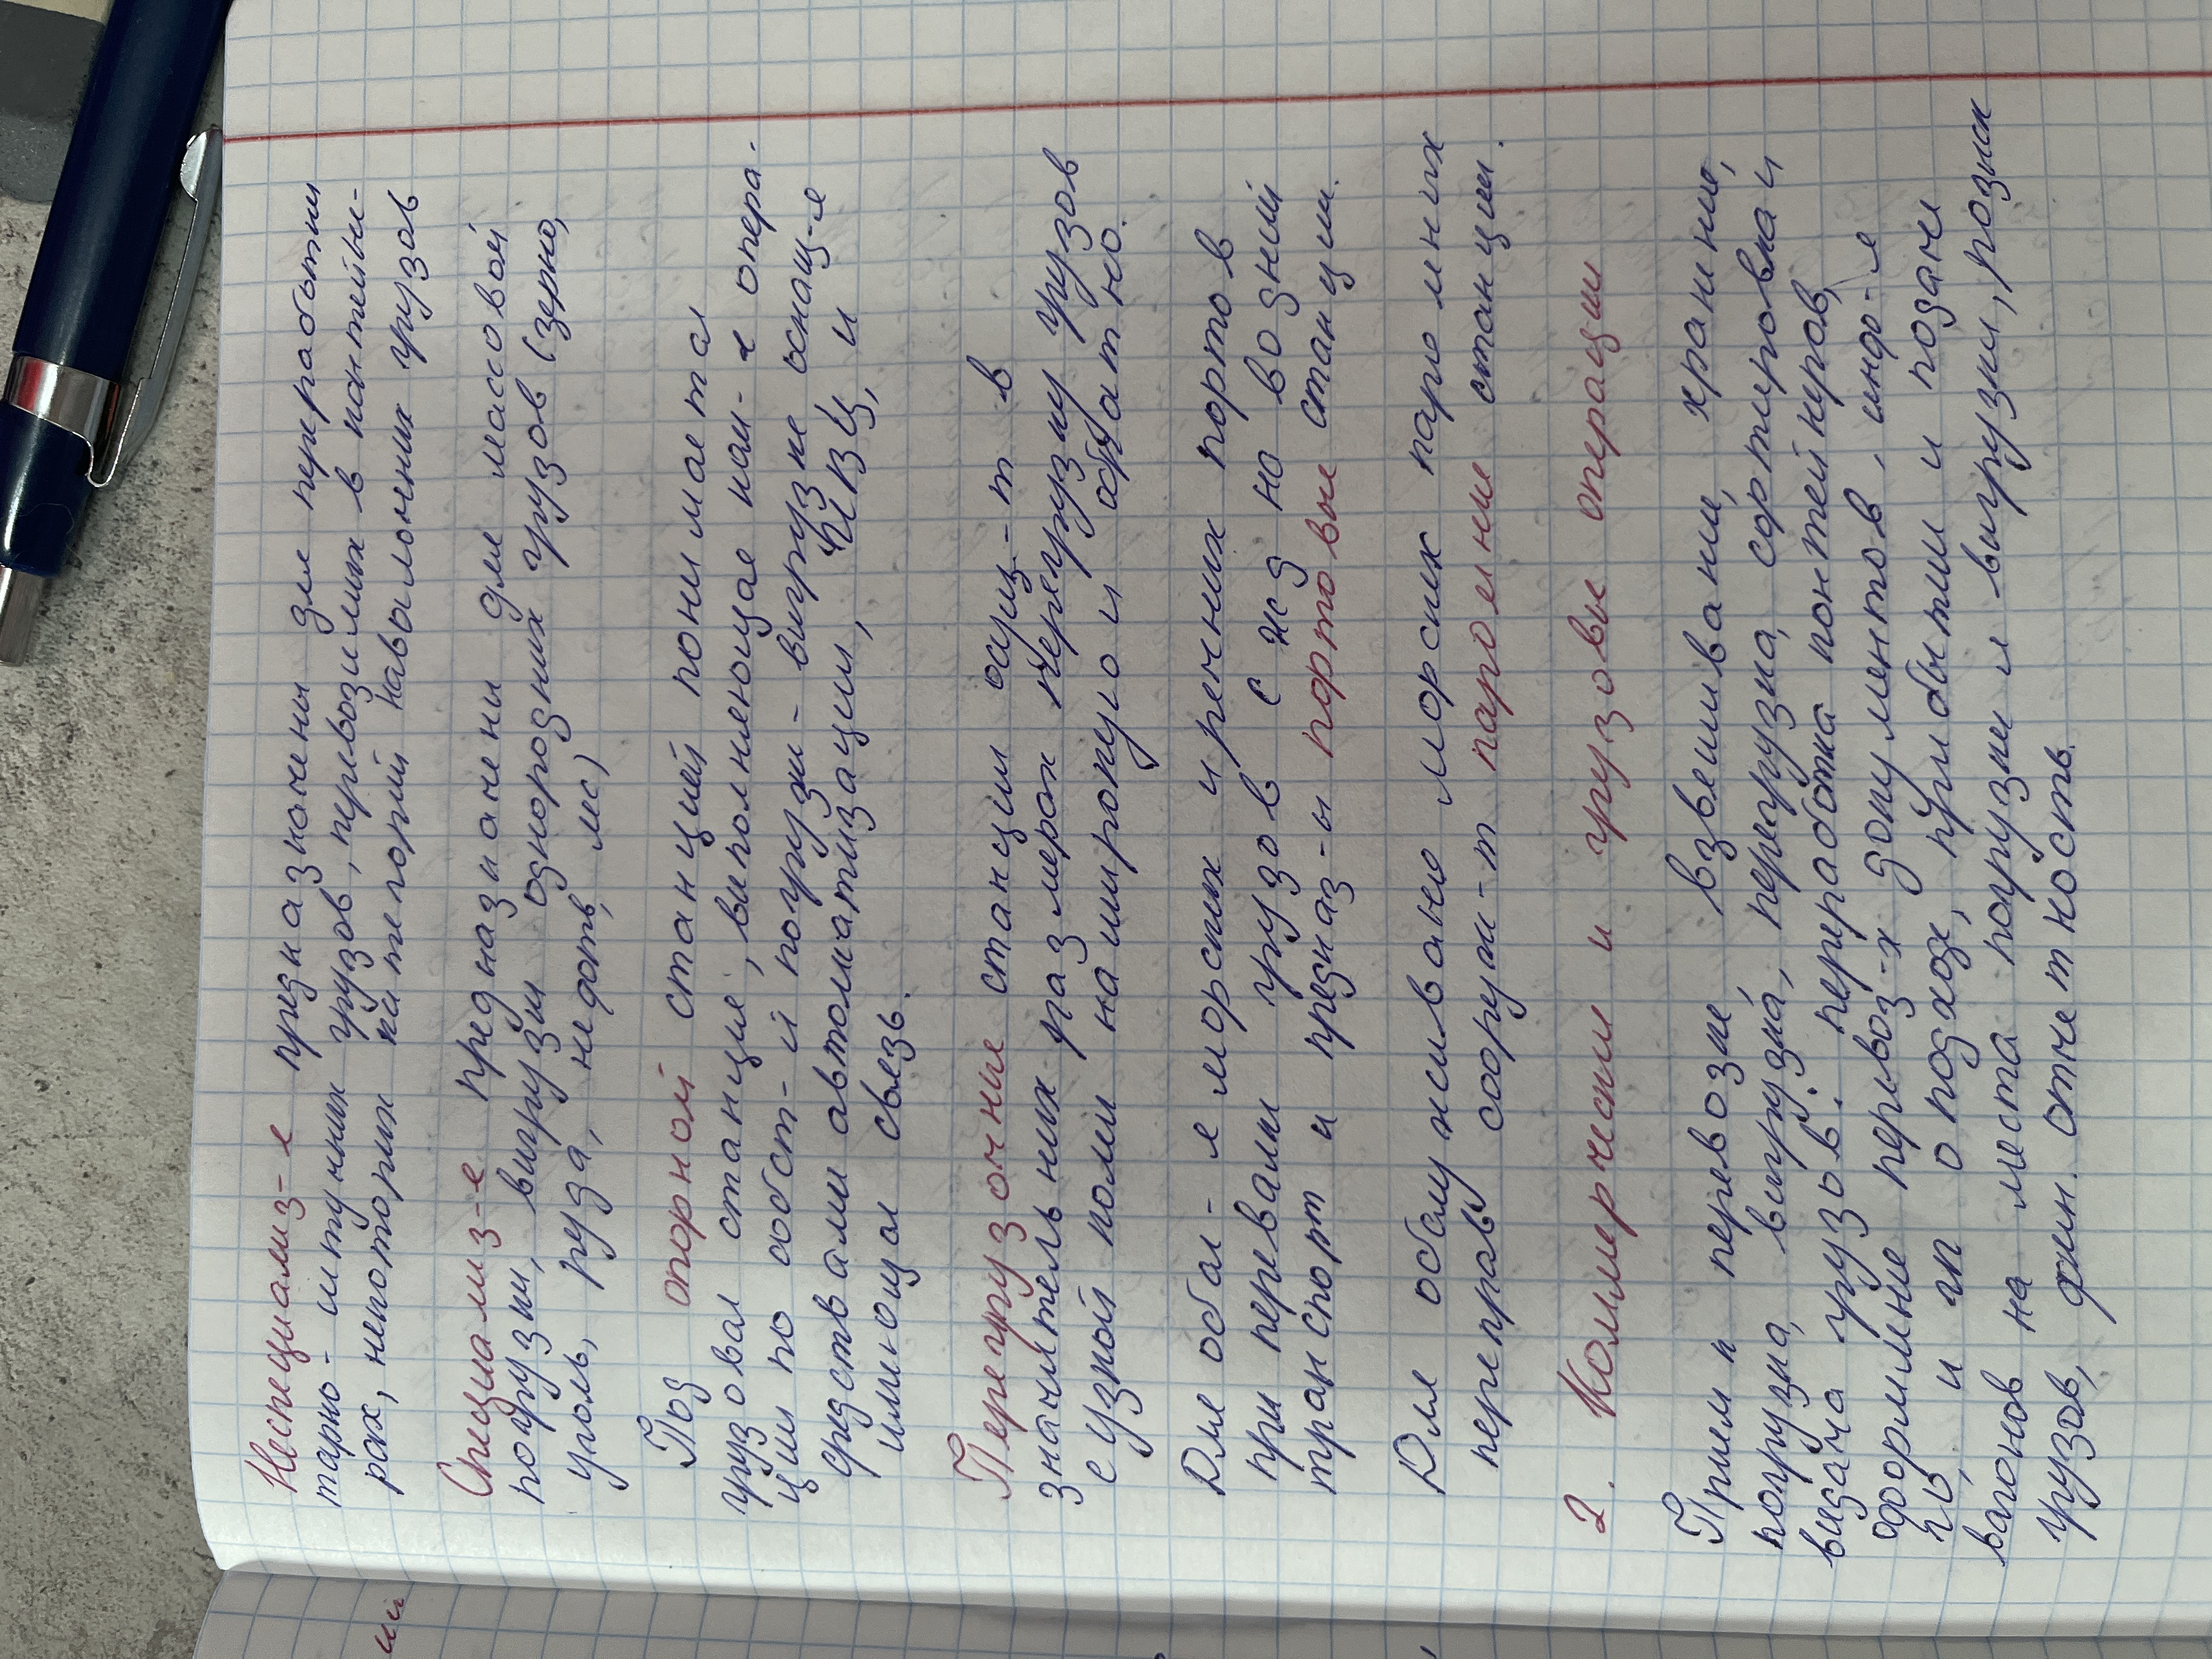 Неспециализ-е предназначены для переработки
тарно-штучных грузов, перевозимых в контейне-
рах, некоторых категорий навалочных грузов
Специализ-е предназначены для массовой
погрузки, выгрузки однородных грузов (зерно,
уголь, руда, нефть, лес)
Под опорной станцией понимается
грузовая станция, выполняющая ком-е опера-
ции по собст-й погрузки-выгрузке оснащ-я
средствами автоматизации, ИВЦ, и
имеющая связь.
Перегрузочные станции осущ-т в
значительных размерах перегрузку грузов
с узкой колеи на широкую и обратно.
Для обсл-я морских и речных портов
при перевалки грузов с жд на водный
транспорт и предназ-ы портовые станции.
Для обслуживание морских паромных
переправ сооруж-т паромные станции.
2. Коммерчески и грузовые операции
Прием к перевозке, взвешивание, хранение,
погрузка, выгрузка, перегрузка, сортировка и
выдача грузов. переработка контейнеров,
оформление перевоз-х документов, инфо-я
ГО и ГП о подходе, прибытии и подачи
вагонов на места погрузки и выгрузки, розыск
грузов, фин. отчетность.
ий